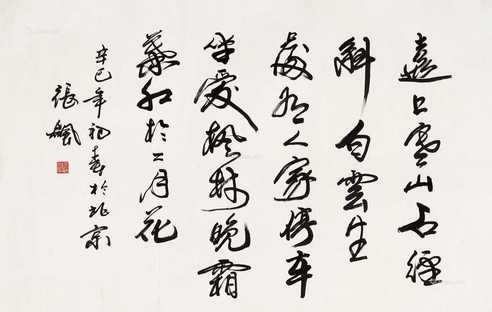 遠上寒山石徑
斜白雲生
處有人家停車
坐愛楓林晚霜
葉紅於二月花
辛巳年初春於北京
張飆